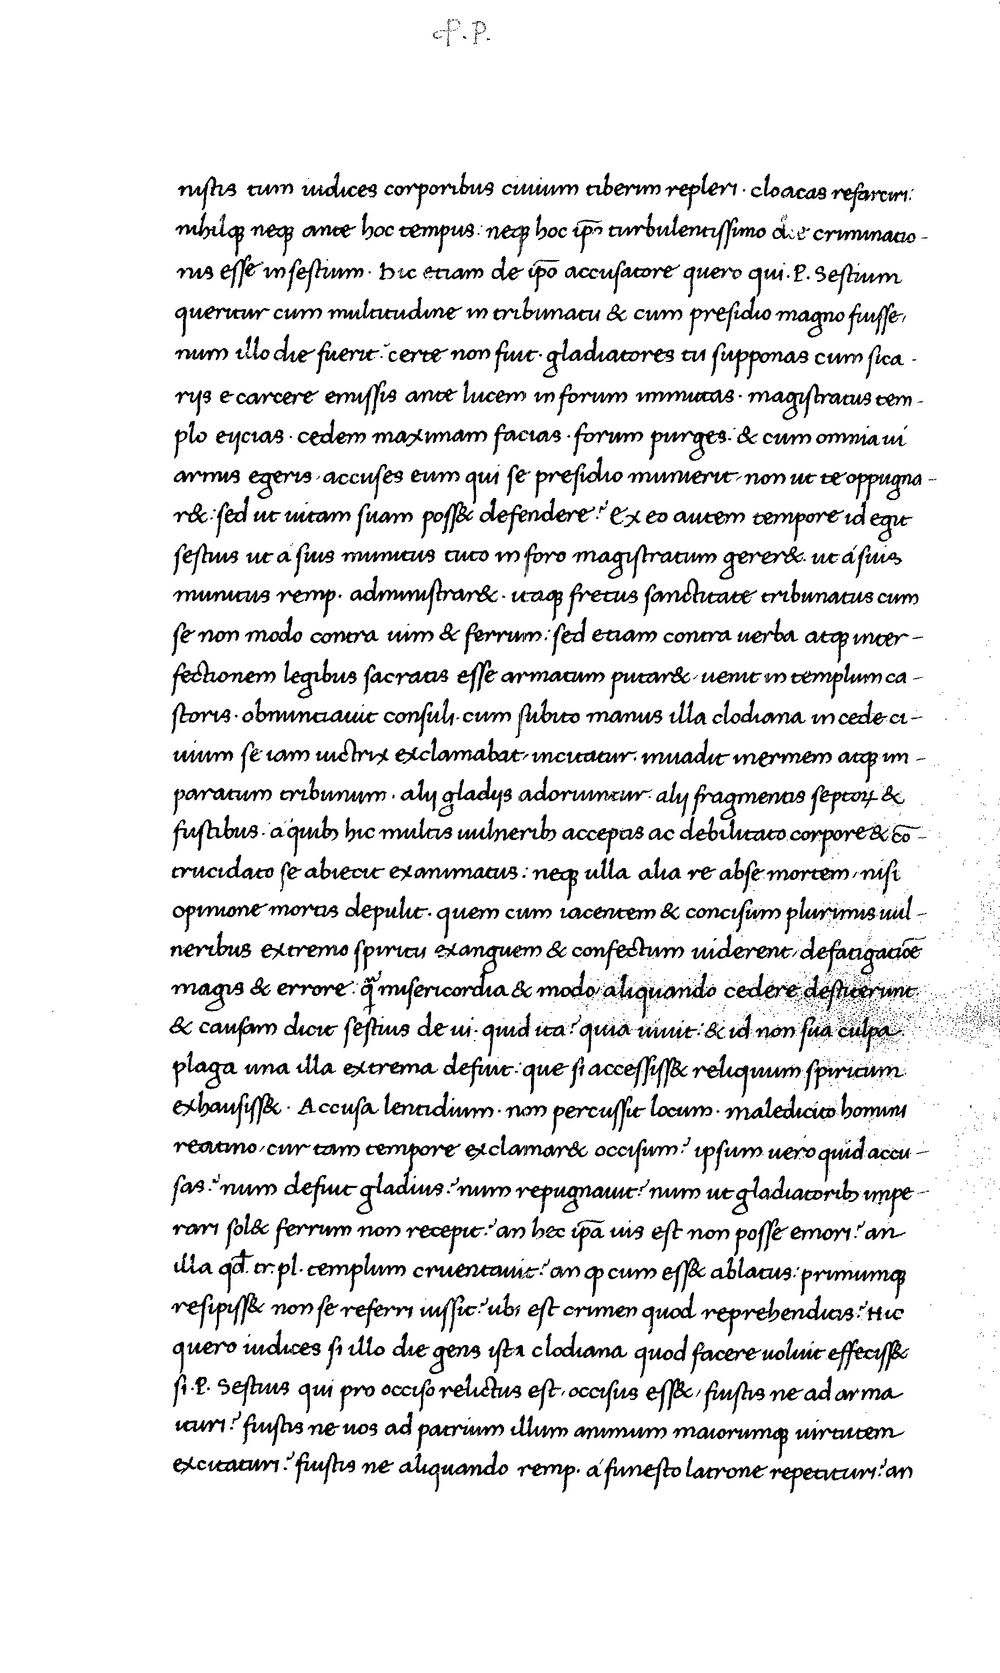 nistis tum iudices corporibus ciuium tiberim repleri · cloacas refarciri:
nihilqꝫ neqꝫ ante hoc tempus: neqꝫ hoc ip̄o turbulentissimo die criminatio-
nis esse in sestium · Hic etiam de ip̄o accusatore quero qui · P. Sestium
queritur cum multitudine in tribunatu & cum presidio magno fuisse,
num illo die fuerit? certe non fuit · gladiatores tu supponas cum sica-
rijs e carcere emissis ante lucem in forum immittas · magistratus tem-
plo eijcias · cedem maximam facias · forum purges · & cum omnia ui
armis egeris, accuses eum qui se presidio munierit, non ut te oppugna-
r&: sed ut uitam suam poss& defendere? Ex eo autem tempore id egit
sestius ut a suis munitus tuto in foro magistratum gerer&. ut a suis
munitus remp. administrar& · itaqꝫ fretus sanctitate tribunatus cum
se non modo contra uim & ferrum: sed etiam contra uerba atqꝫ inter-
fectionem legibus sacratis esse armatum putar&, uenit in templum ca-
storis · obnuntiauit consuli · cum subito manus illa clodiana in cede ci-
uium se iam uictrix exclamabat, incitatur · inuadit inermem atqꝫ im-
paratum tribunum · alij gladijs adoriuntur · alij fragmentis septoꝝ &
fustibus · a quibꝫ hic multis uulneribꝫ acceptis ac debilitato corpore & cō-
trucidato se abiecit exanimatus: neqꝫ ulla alia re abse mortem, nisi
opinione mortis depulit · quem cum iacentem & concisum plurimis uul-
neribus extremo spiritu exanguem & confectum uiderent, defatigatiōe
magis & errore · q̄ misericordia & modo aliquando cedere destiterunt
& causam dicit sestius de ui · quid ita? quia uiuit: & id non sua culpa.
plaga una illa extrema defuit: que si accessiss& reliquum spiritum
exhausiss& · Accusa lentidium · non percussit locum · maledicito homini
reatino, cur tam tempore exclamar& occisum? ipsum uero quid accu-
sas? num defuit gladius? num repugnauit? num ut gladiatoribꝫ impe-
rari sol& ferrum non recepit? an hec ip̄a uis est non posse emori? an
illa qđ. tr. pl. templum cruentauit? an ꝙ cum ess& ablatus: primumqꝫ
resipiss& non se referri iussit? ubi est crimen quod reprehenditis? Hic
quero iudices si illo die gens ista clodiana quod facere uoluit effeciss&
si · P. Sestius qui pro occiso relictus est, occisus ess&, fuistis ne ad arma
ituri? fuistis ne uos ad patrium illum animum maiorumqꝫ uirtutem
excitaturi? fuistis ne aliquando remp. a funesto latrone repetituri? an